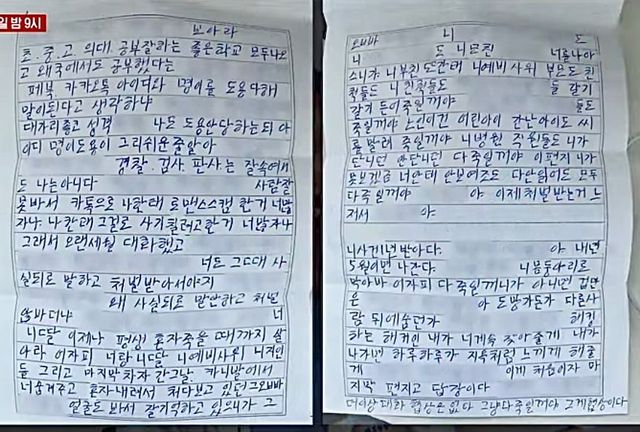 일 밤 9시
보아라
초.중.고 의대 공부잘하는 좋은학교 모두나오
고 외국에서도 공부했다는
페북 카카오톡 아이디와 명이를 도용당해
말이된다고 생각하냐
대가리좋고 성격 나도 도용안당하는되 아
이디 명이도용이 그리쉬운줄알아
경찰.검사.판사는 잘속여에
도 나는아니다. 사람잘
못봐서 카톡으로 나한테 로맨스스캠 한거 너밥
자나. 나한테 그걸로 사기칠려고한거 너밥자나
그래서 오랜세월 대화했고
너도 그대 사
실되로 말하고 처벌받아서야지
왜 사실되로 말안하고 처벌
않바더냐 너
니드달 이제나 평싱 혼자죽을때까지 살
아라 어차피 너랑 니드달 니예비사위 니지인
듣 그리고 마지막차자 간그날. 카니발에서
너숨겨주고 혼자내려서 처다보고있던 그오빠바
얼굴도 봐서 잘기억하고 있으니가 그
오빠바 니 도
니 도 니모친 너를나아
스니가 니부친도한테 니예비사위 부모도 친
척들도 니친척들도 돌 갈기
갈기 듣어죽일꺼야 들도
죽일꺼야 노인이건 어린아이 간난아이도 씨
를 말려 죽일꺼야 니병원 직원들도 니가
단니던 안단니던 다 죽일꺼야 이편지 니가
못보겠금 너한테 안보여주도 다한일어도 모두
다죽일꺼야 야 이제처벌받는거 느
저서 야.
니사게년받아다. 야 내년
5월이면 나간다. 니몽둥아리로
막아바 어차피 다죽일꺼니가 아니면 겁먼
은 아 도망가든가 다른사
람 뒤에습던가 해킹
하는 해커인 내가 너게속 찾아줄게 내가
나가면 하루하루가 지옥처럼 느끼게 해줄
게 이게 처음이자 마
지막 편지고 답장이다
더이상대화 협상은 없다 그냥다죽일꺼야 그게협상이다